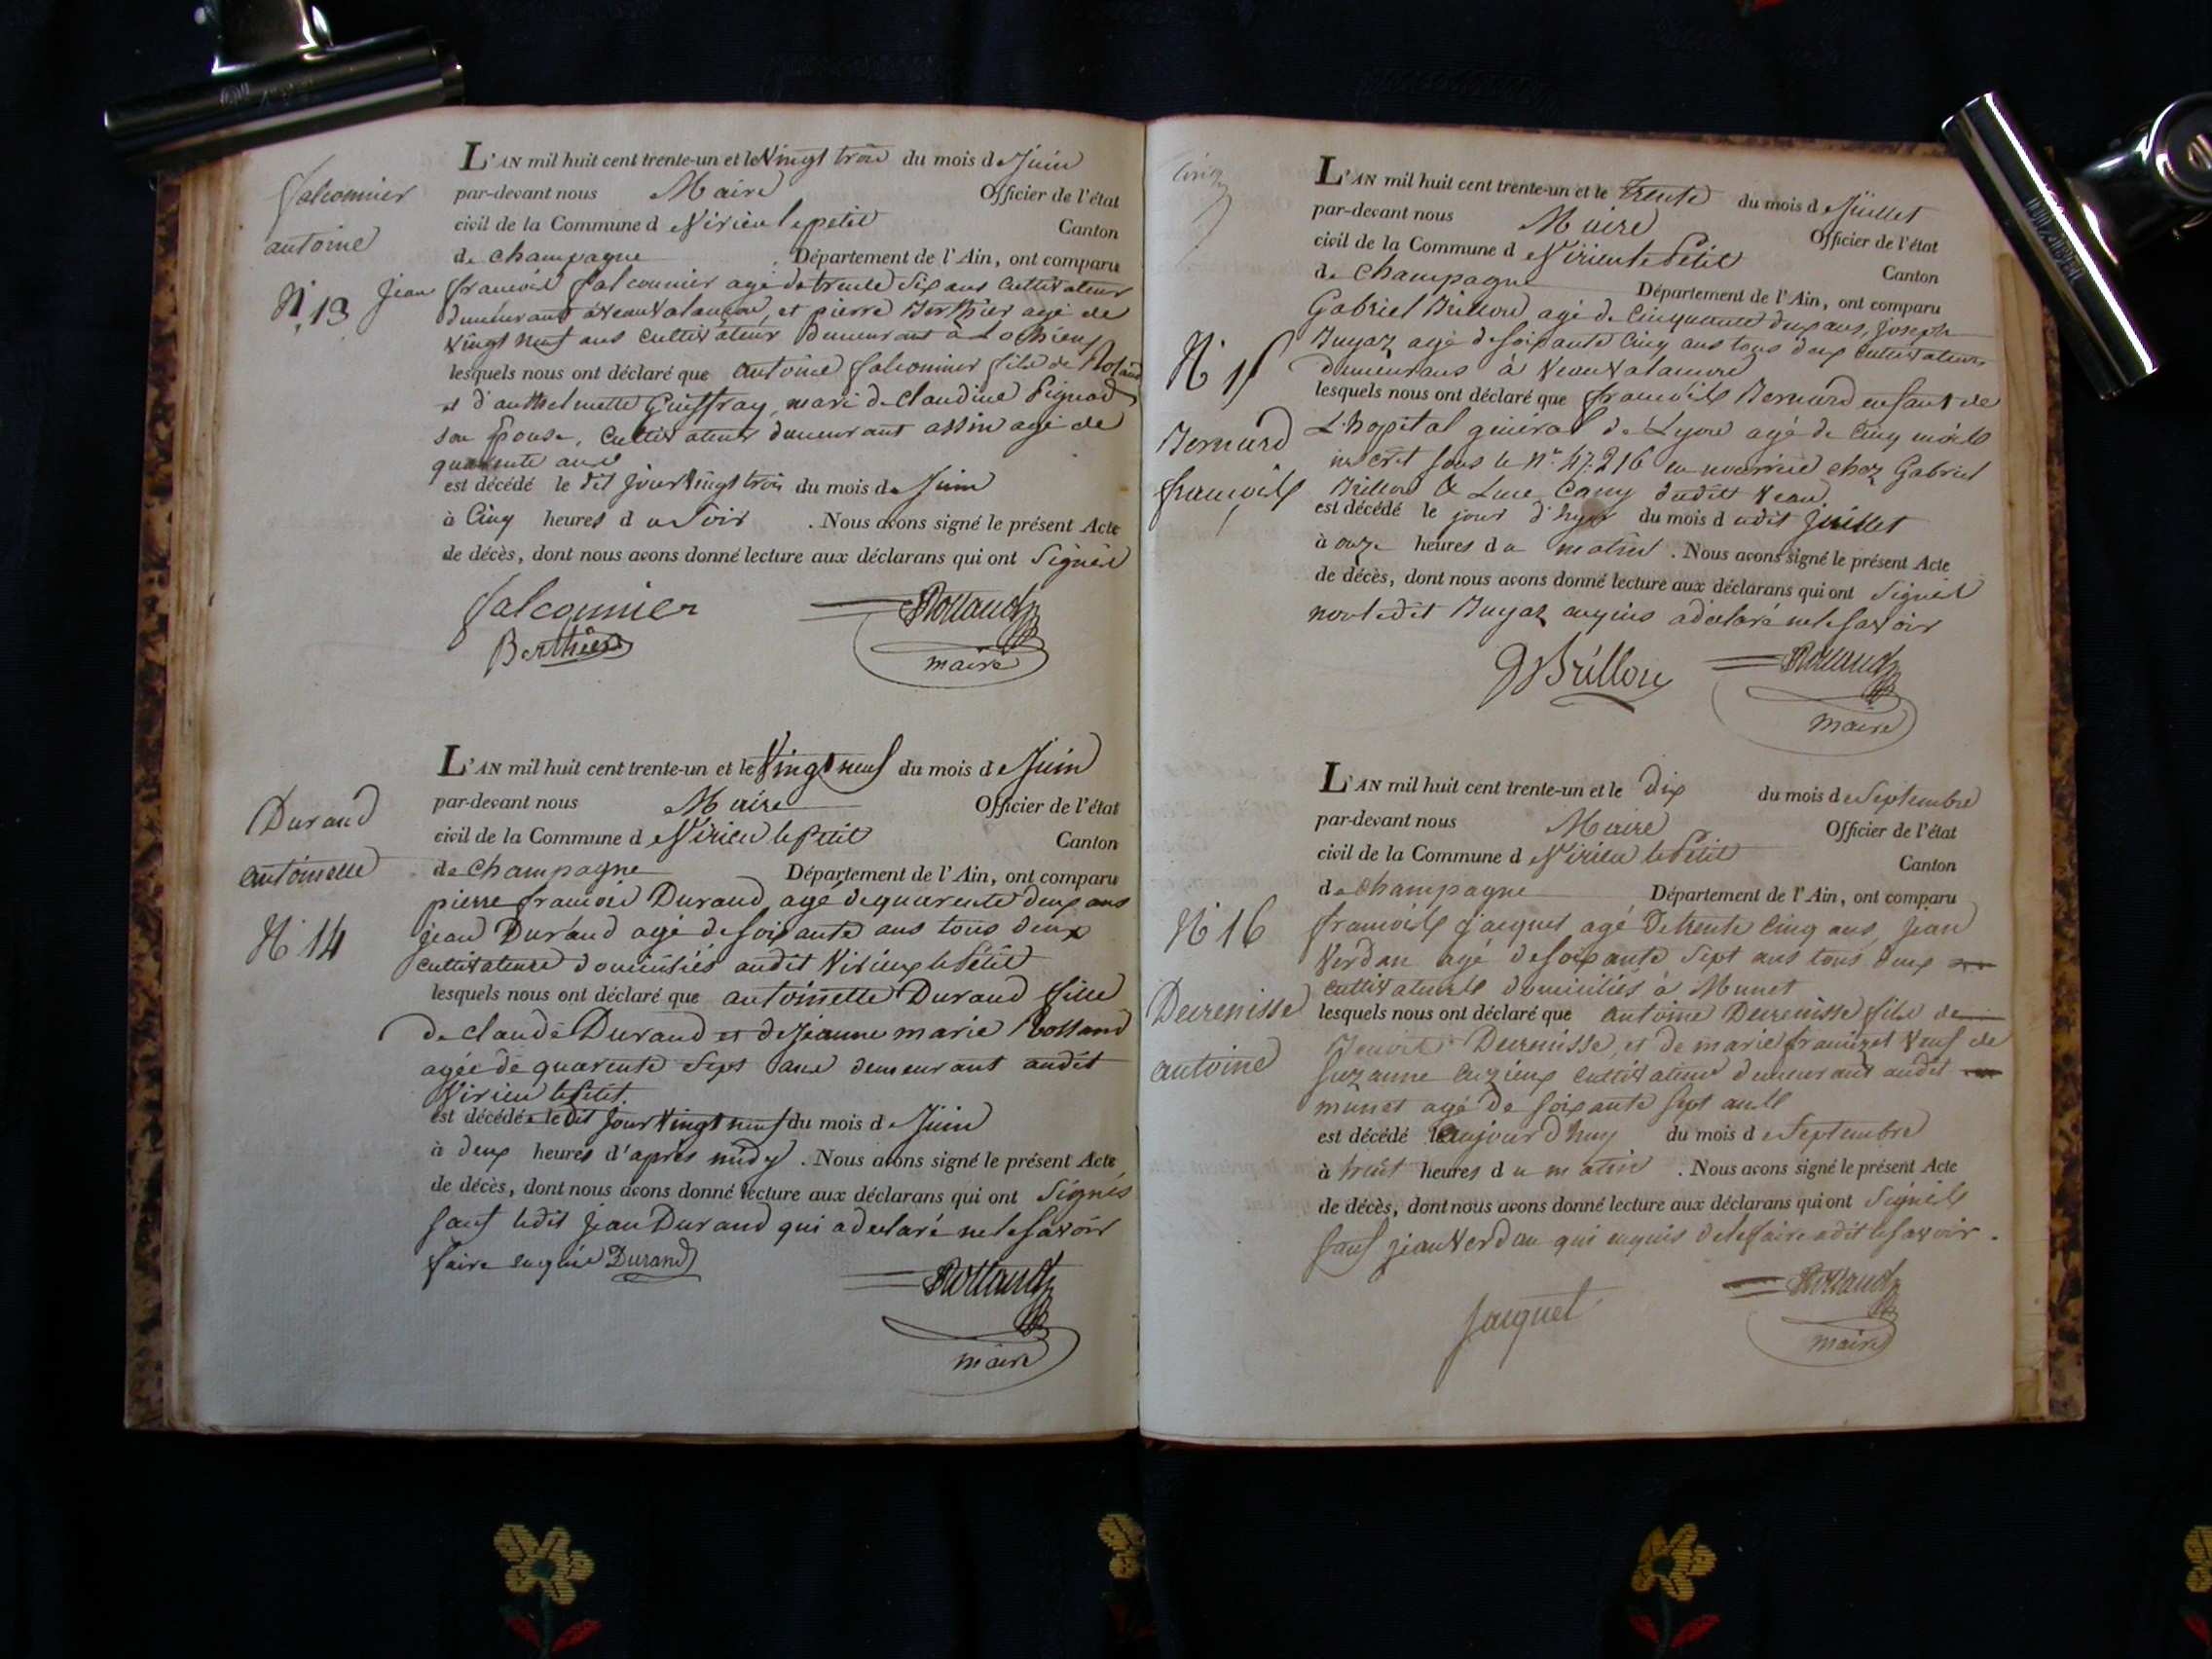 falconnier
antoine
N. 13
L'AN mil huit cent trente-un et le Vingt trois du mois de Juin
par-devant nous Maire Officier de l'état
civil de la Commune de Virieu le petit Canton
de champagne Département de l'Ain, ont comparu
jean francois falconnier agé de trente Six ans cultivateur
demeurant à et pierre Berthier agé de
vingt neuf ans cultivateur demeurant à Lochieu
lesquels nous ont déclaré que antoine falconnier fils de
et d'anthelmette Guiffray, mari de claudine Pignod
son Epouse, cultivateur demeurant assin agé de
quarente ans
est décédé le dit jour vingt trois du mois de Juin
à Cinq heures du Soir . Nous avons signé le présent Acte
de décès, dont nous avons donné lecture aux déclarans qui ont Signés
falconnier
Rolland
Berthier
maire
Durand
antoinette
N. 14
L'AN mil huit cent trente-un et le Vingt neuf du mois de Juin
par-devant nous Maire Officier de l'état
civil de la Commune de Virieu le Petit Canton
de champagne Département de l'Ain, ont comparu
pierre francois Durand agé de quarente deux ans
jean Durand agé de soixante ans tous deux
cultivateurs domiciliés audit Virieux le Petit
lesquels nous ont déclaré que antoinette Durand fille
de claude Durand et de jeanne marie Rolland
agée de quarente Sept ans demeurant audit
Virieu le Petit.
est décédée le dit jour Vingt neuf du mois de Juin
à deux heures d'après midy . Nous avons signé le présent Acte
de décès, dont nous avons donné lecture aux déclarans qui ont Signés
sauf ledit jean Durand qui a declaré ne le savoir
faire enquis Durand
Rolland
maire
cinq
L'AN mil huit cent trente-un et le Trente du mois de Juillet
par-devant nous Maire Officier de l'état
civil de la Commune de Virieu le Petit Canton
de Champagne Département de l'Ain, ont comparu
Gabriel Brillon agé de Cinquante deux ans, joseph
agé de soixante Cinq ans tous deux cultivateurs
demeurans à
N. 15
Bernard
francois
lesquels nous ont déclaré que francois Bernard enfant de
L'hopital général de Lyon agé de Cinq mois
inscrit sous le N° 47.216 en nourrice chez Gabriel
Brillon & Luce Cany dudit
est décédé le jour d'hyer du mois dudit juillet
à onze heures du matin . Nous avons signé le présent Acte
de décès, dont nous avons donné lecture aux déclarans qui ont Signés
non ledit enquis a declaré ne le savoir
GBrillon
Rolland
maire
L'AN mil huit cent trente-un et le dix du mois de Septembre
par-devant nous Maire Officier de l'état
civil de la Commune de Virieu le Petit Canton
de Champagne Département de l'Ain, ont comparu
N. 16
francois jacquet agé de trente Cinq ans, jean
Verdan agé de soixante Sept ans tous deux
cultivateurs domiciliés à Munet
Decrenisse
antoine
lesquels nous ont déclaré que antoine Decrenisse fils de
Benoit Decrenisse, et de marie francizet Veuf de
Suzanne Cuzieux cultivateur demeurant audit
munet agé de soixante sept ans
est décédé le aujourd'huy du mois de Septembre
à huit heures du matin . Nous avons signé le présent Acte
de décès, dont nous avons donné lecture aux déclarans qui ont Signés
sauf jean Verdan qui enquis de le faire a dit le savoir.
Jacquet
Rolland
maire